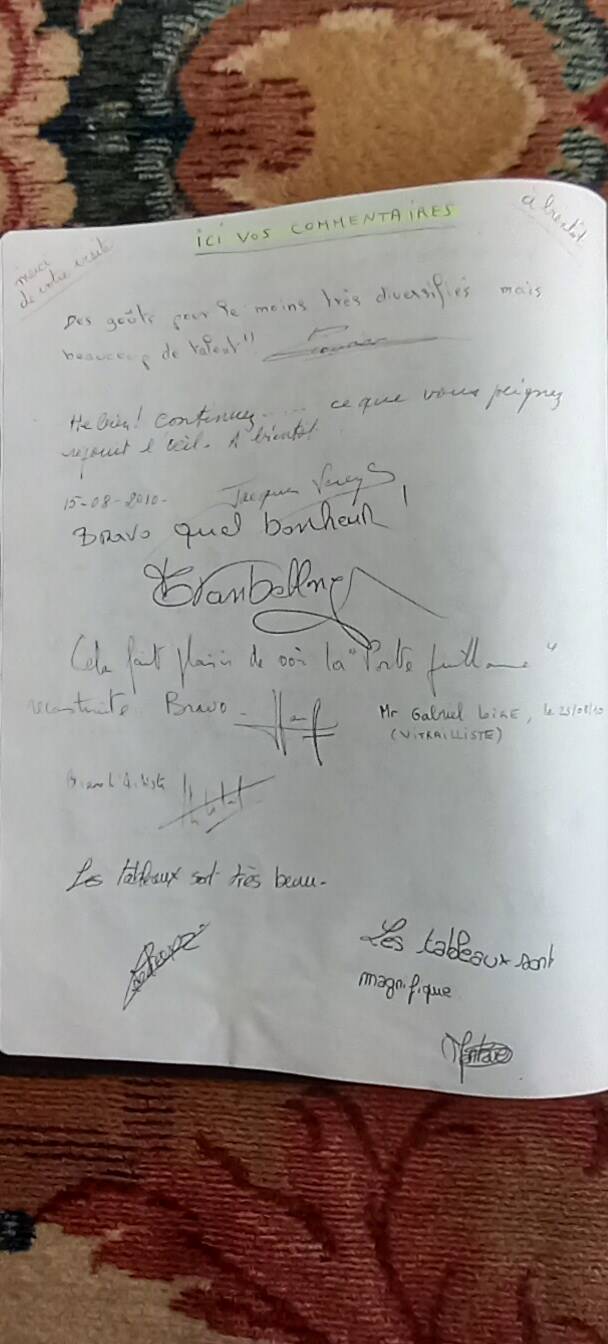 merci
de votre visite
ICI VOS COMMENTAIRES
à bientôt
Des goûts pour le moins très diversifiés mais
beaucoup de talent!!
He bien! continuez..... ce que vous peignez
rejouit l'œil. A bientôt!
15-08-2010-
Jacques
Bravo quel bonheur!
Cela fait plaisir de voir la "Porte Guillaume"
reconstruite. Bravo -
Mr Gabriel LOIRE, le 23/08/10
(VITRAILLISTE)
Grand Artiste
Les tableaux sont très beau.
Les tableaux sont
magnifique